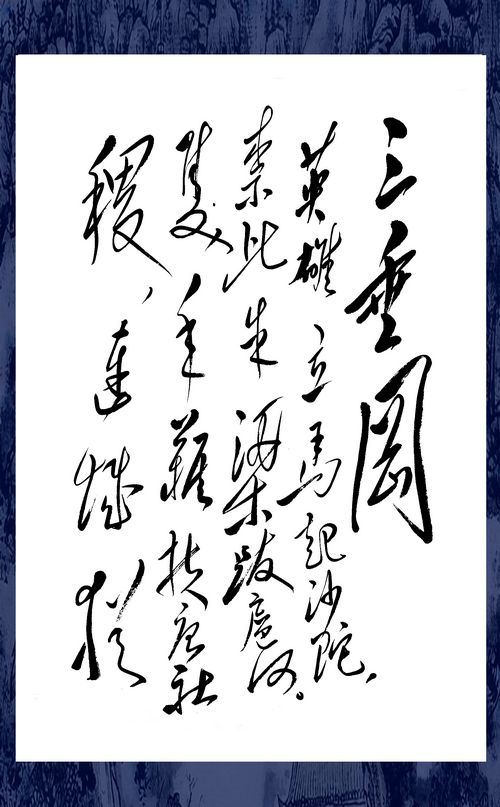 三垂岡
英雄立馬起沙陀，
柰此朱梁跋扈何。
隻手難扶唐社
稷，連城猶